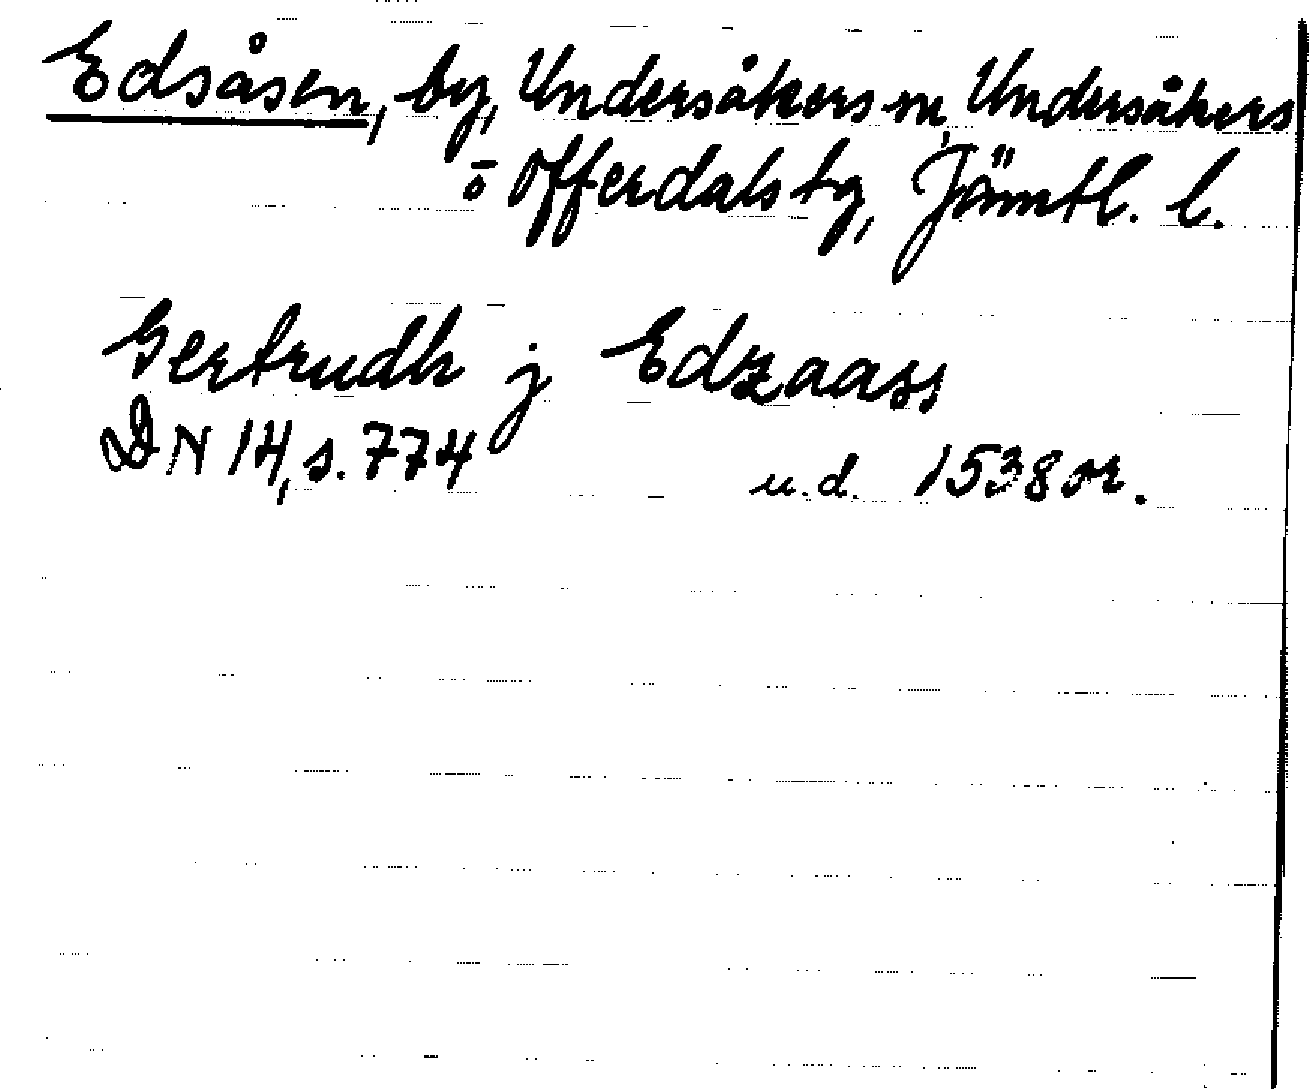 Edsåsen, by, Undersåkers sn, Undersåkers
o Offerdals tg, Jämtl. l.
Gertrudh j Edzaass
DN 14, s. 774 u.d. 1538 or.